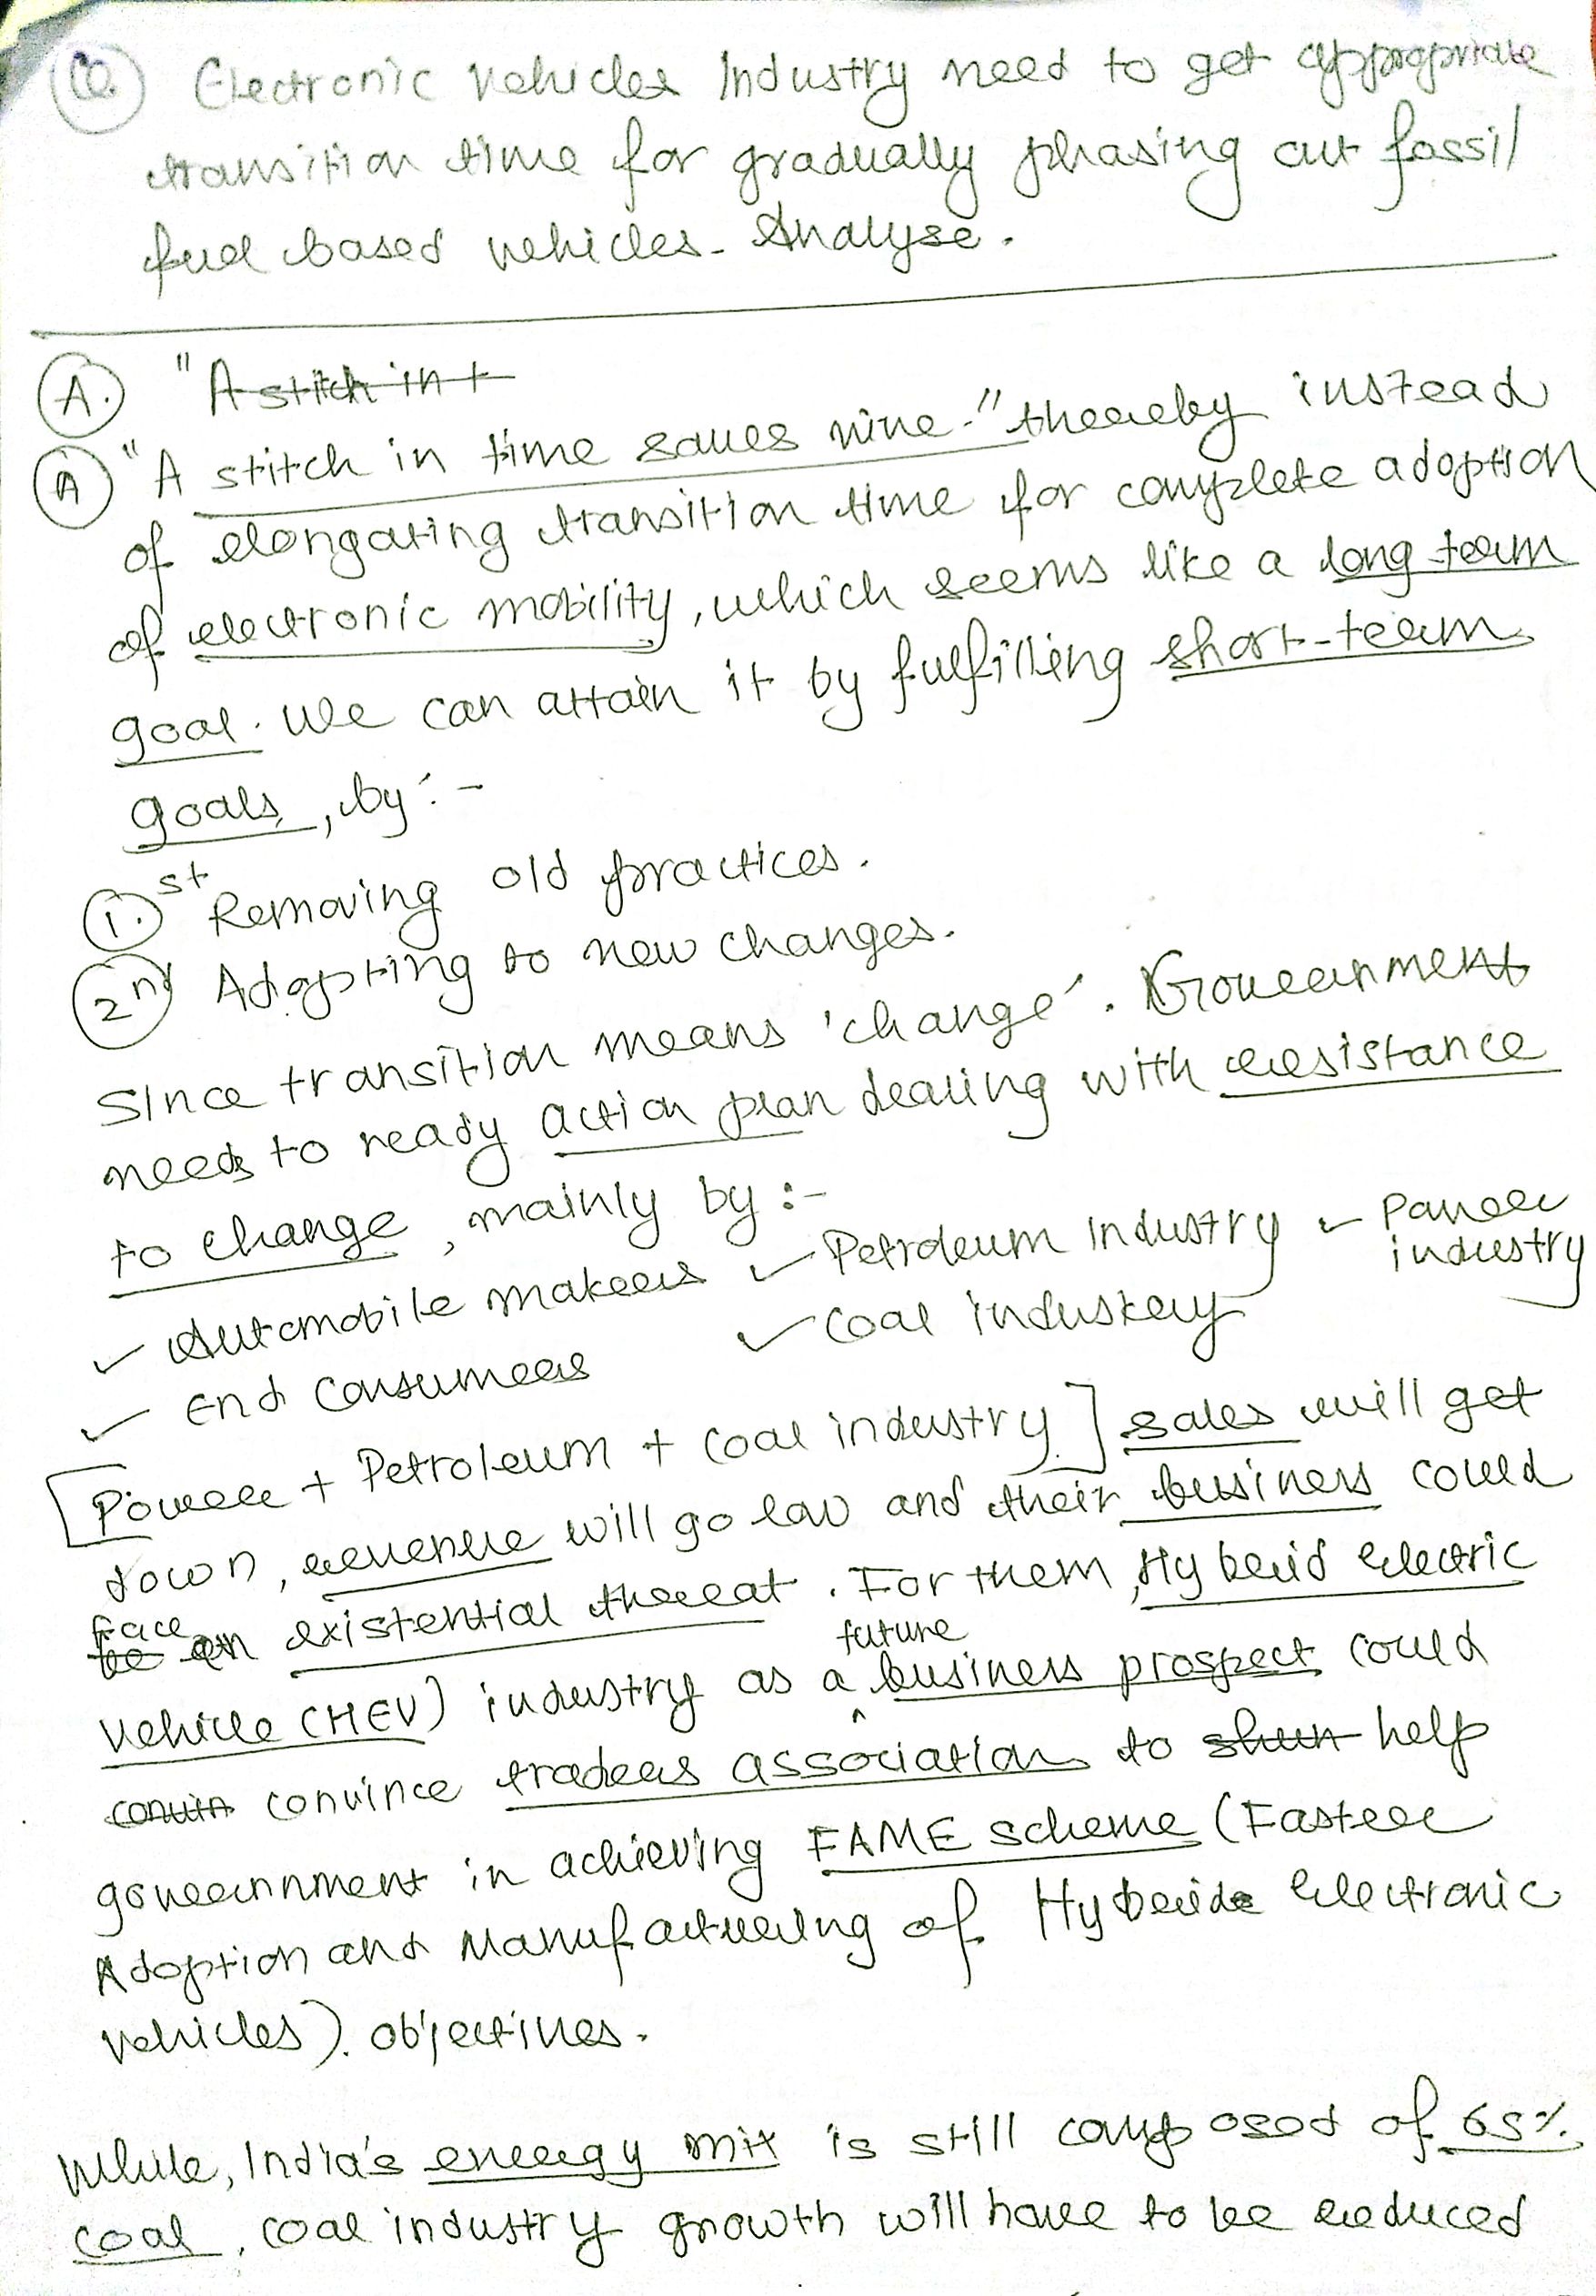 Q. Electronic vehicles Industry need to get appropriate
transition time for gradually phasing out fossil
fuel based vehicles. Analyse.
A. "A stitch in t
A "A stitch in time saves nine." thereby instead
of elongating transition time for complete adoption
of electronic mobility, which seems like a long term
goal. We can attain it by fulfilling short-term
goals, by:-
1.st Removing old practices.
2nd Adopting to new changes.
Since transition means 'change'. Government
needs to ready action plan dealing with resistance
to change, mainly by :-
✓ Automobile makers ✓ Petroleum industry ✓ Power industry
✓ End consumers ✓ Coal industry
[Power + Petroleum + coal industry] sales will get
down, revenue will go low and their business could
be face an existential threat. For them, Hybrid electric
vehicle (HEV) industry as a future business prospect could
convin convince traders association to shun help
government in achieving FAME scheme (Faster
Adoption and Manufacturing of Hybride Electronic
vehicles). objectives.
While, India's energy mix is still composed of 65%
coal, coal industry growth will have to be reduced